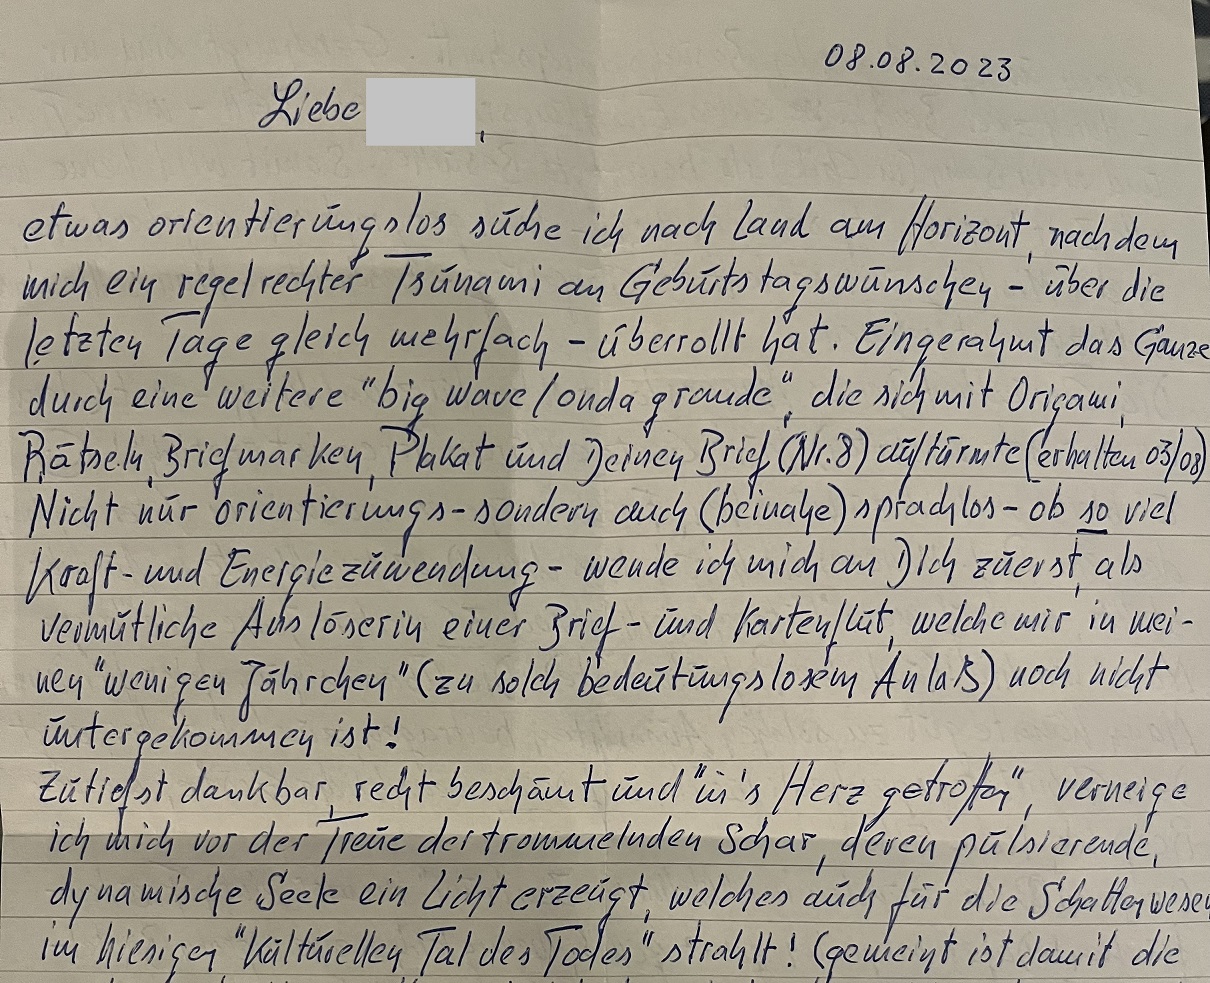 08.08.2023
Liebe ,
etwas orientierungslos suche ich nach Land am Horizont, nachdem
mich ein regelrechter Tsunami an Geburtstagswünschen - über die
letzten Tage gleich mehrfach - überrollt hat. Eingerahmt das Ganze
durch eine weitere "big wave/onda grande", die sich mit Origami,
Rätseln, Briefmarken, Plakat und Deinen Brief (Nr.8) auftürmte (erhalten 03/08)
Nicht nur orientierungs-sondern auch (beinahe) sprachlos- ob so viel
Kraft- und Energiezuwendung - wende ich mich an Dich zuerst, als
vermutliche Auslöserin einer Brief- und Kartenflut, welche mir in mei-
nen "wenigen Jährchen" (zu solch bedeutungslosem Anlaß) noch nicht
untergekommen ist!
Zutiefst dankbar, recht beschämt und "in's Herz getroffen", verneige
ich mich vor der Treue der trommelnden Schar, deren pulsierende,
dynamische Seele ein Licht erzeugt, welches auch für die Schattenwesen
im hiesigen "Kulturellen Tal des Todes" strahlt! (gemeint ist damit die